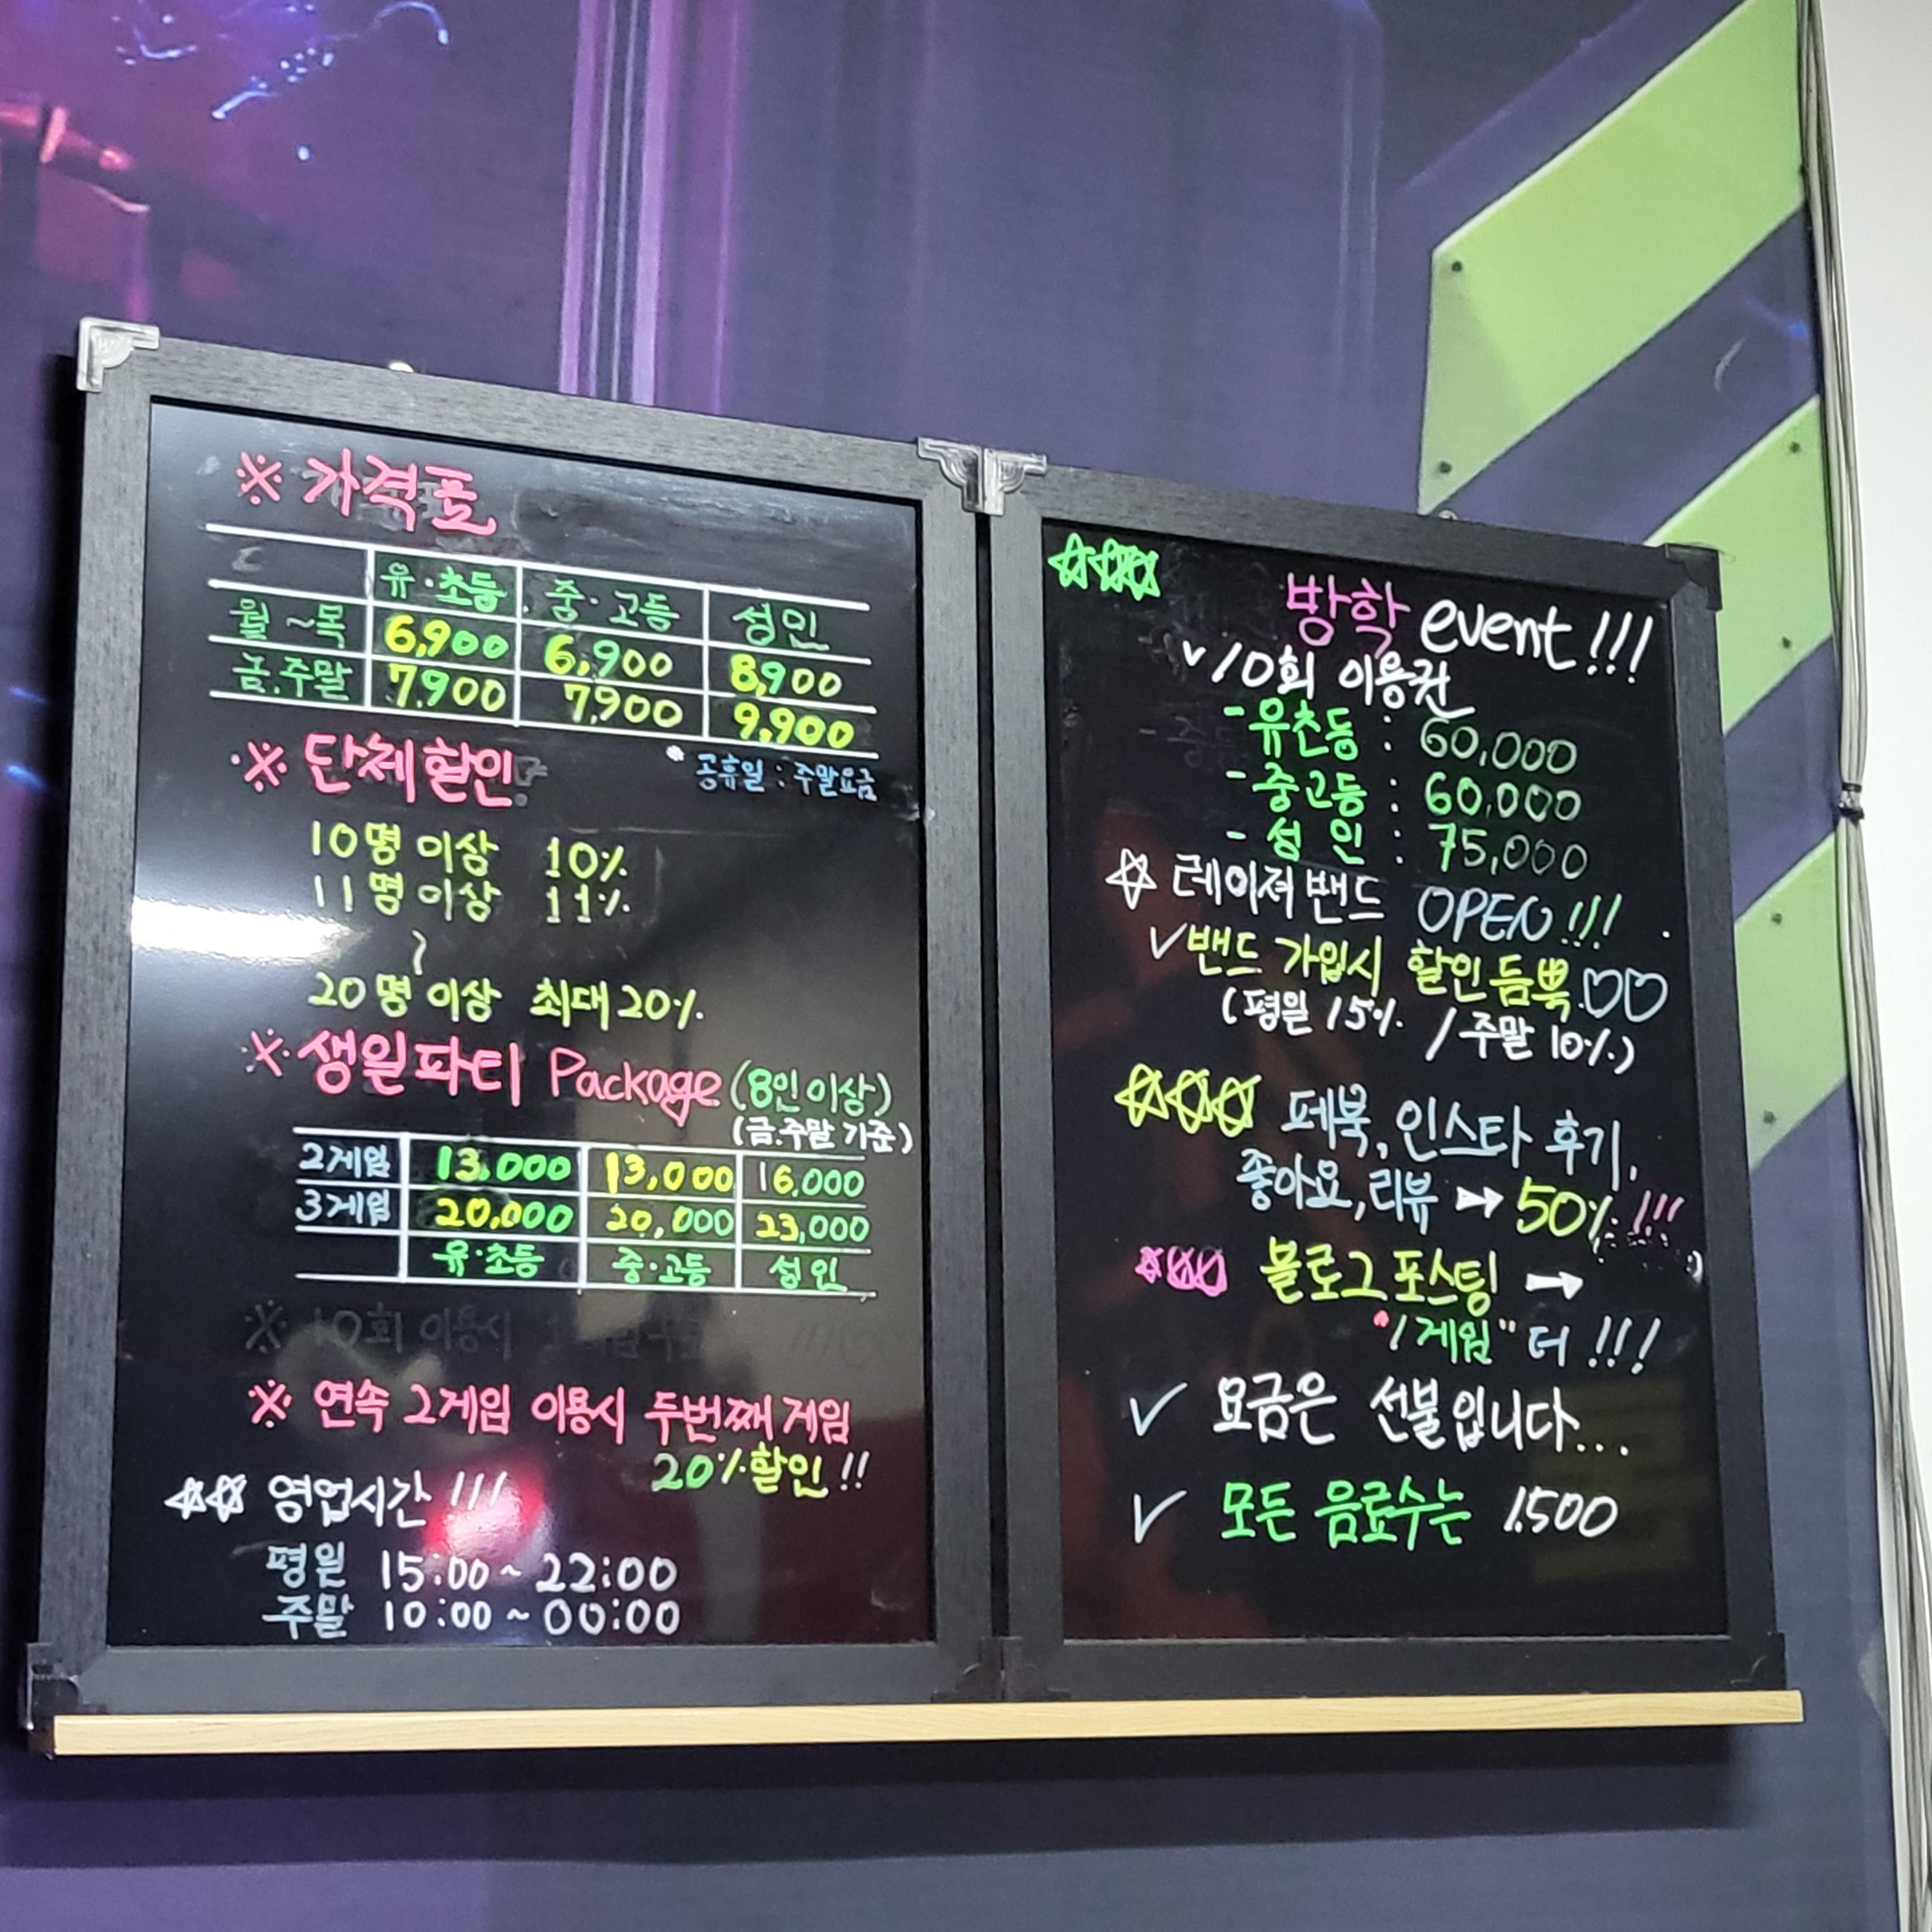 ※ 가격표
유·초등 중·고등 성인
월~목 6,900 6,900 8,900
금.주말 7,900 7,900 9,900
* 공휴일 : 주말요금
※ 단체할인
10명 이상 10%
11명 이상 11%
~
20명 이상 최대 20%
※ 생일파티 Package (8인 이상)
(금.주말 기준)
2게임 13,000 13,000 16,000
3게임 20,000 20,000 23,000
유·초등 중·고등 성인
※ 10회 이용시
※ 연속 2게임 이용시 두번째 게임
20% 할인 !!
☆☆ 영업시간 !!!
평일 15:00 ~ 22:00
주말 10:00 ~ 00:00
☆☆☆ 방학 event !!!
✓ 10회 이용권
- 유초등 : 60,000
- 중고등 : 60,000
- 성인 : 75,000
☆ 레이져밴드 OPEN !!!
✓ 밴드 가입시 할인 듬뿍 ♡♡
(평일 15% / 주말 10%)
☆☆☆ 페북, 인스타 후기,
좋아요, 리뷰 → 50% !!!
☆☆☆ 블로그 포스팅 →
"1게임" 더 !!!
✓ 요금은 선불입니다...
✓ 모든 음료수는 1,500